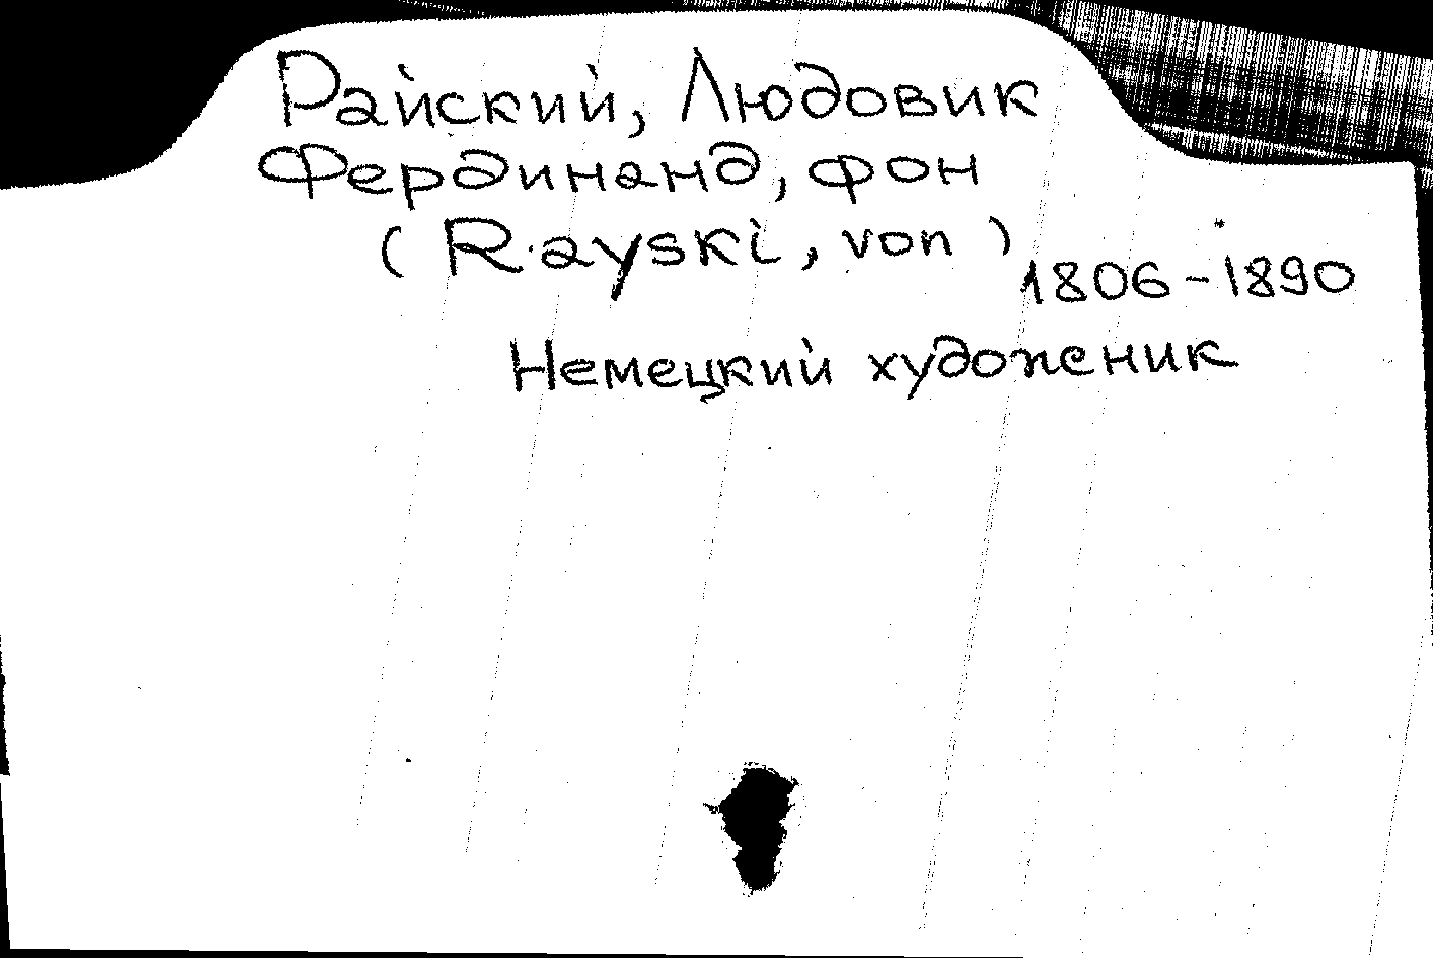 Райский, Людовик
Фердинанд, фон
(Rayski, von)
1806-1890
Немецкий художник